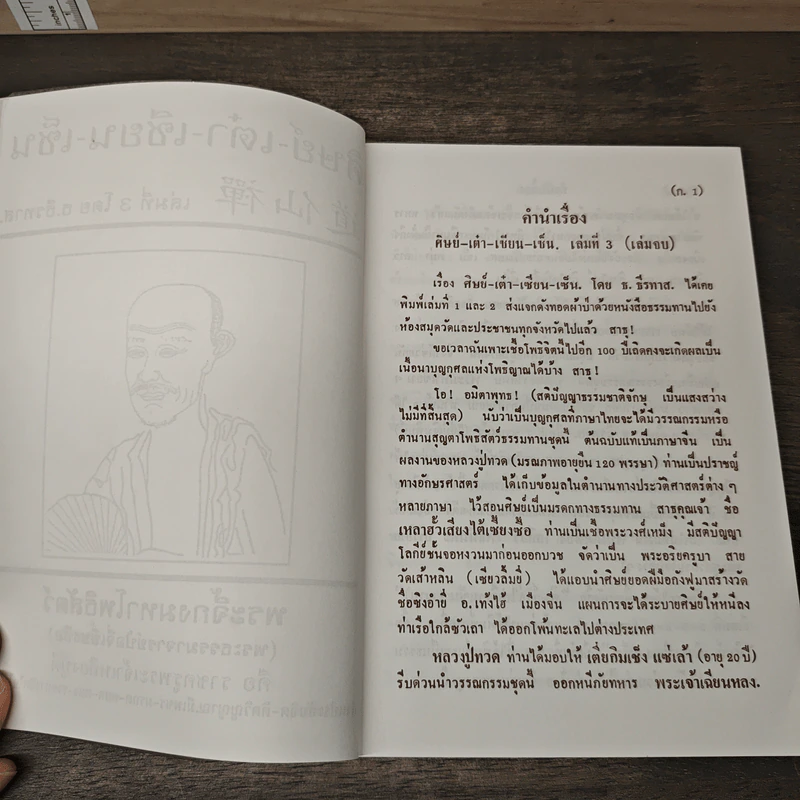 (ก. 1)
คำนำเรื่อง
ศิษย์-เต๋า-เซียน-เซ็น. เล่มที่ 3 (เล่มจบ)
เรื่อง ศิษย์-เต๋า-เซียน-เซ็น. โดย ธ. ธีรทาส. ได้เคย
พิมพ์เล่มที่ 1 และ 2 ส่งแจกดังทอดผ้าป่าด้วยหนังสือธรรมทานไปยัง
ห้องสมุดวัดและประชาชนทุกจังหวัดไปแล้ว สาธุ!
ขอเวลาฉันเพาะเชื้อโพธิจิตนี้ไปอีก 100 ปีเถิดคงจะเกิดผลเป็น
เนื้อนาบุญกุศลแห่งโพธิญาณได้บ้าง สาธุ!
โอ! อมิตาพุทธ! (สติปัญญาธรรมชาติจักษุ เป็นแสงสว่าง
ไม่มีที่สิ้นสุด) นับว่าเป็นบุญกุศลที่ภาษาไทยจะได้มีวรรณกรรมหรือ
ตำนานสุญตาโพธิสัตว์ธรรมทานชุดนี้ ต้นฉบับแท้เป็นภาษาจีน เป็น
ผลงานของหลวงปู่ทวด (มรณภาพอายุยืน 120 พรรษา) ท่านเป็นปราชญ์
ทางอักษรศาสตร์ ได้เก็บข้อมูลในตำนานทางประวัติศาสตร์ต่าง ๆ
หลายภาษา ไว้สอนศิษย์เป็นมรดกทางธรรมทาน สาธุคุณเจ้า ชื่อ
เหลาฮั้วเสียงไต้เซี้ยงซื้อ ท่านเป็นเชื้อพระวงศ์เหม็ง มีสติปัญญา
โลกีย์ชั้นจอหงวนมาก่อนออกบวช จัดว่าเป็น พระอริยครูบา สาย
วัดเส้าหลิน (เซียวลิ้มยี่) ได้แอบนำศิษย์ยอดฝีมือกังฟูมาสร้างวัด
ชื่อซิงอำยี่ อ.เท้งไฮ้ เมืองจีน แผนการจะได้ระบายศิษย์ให้หนีลง
ท่าเรือใกล้ซัวเถา ได้ออกโพ้นทะเลไปต่างประเทศ
หลวงปู่ทวด ท่านได้มอบให้ เตี่ยกิมเช็ง แซ่เล้า (อายุ 20 ปี)
รีบด่วนนำวรรณกรรมชุดนี้ ออกหนีภัยทหาร พระเจ้าเฉียนหลง.